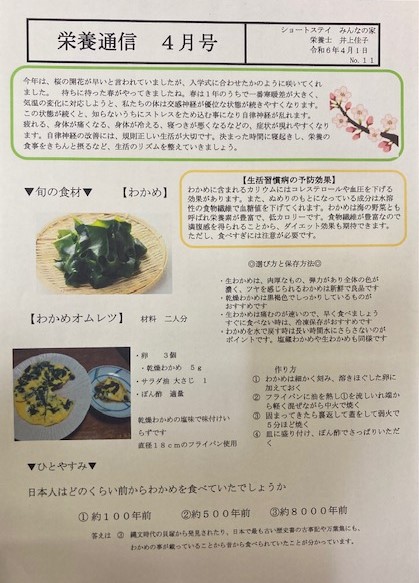 栄養通信　４月号
ショートステイ　みんなの家
栄養士　井上佳子
令和６年４月１日
No.１１
今年は、桜の開花が早いと言われていましたが、入学式に合わせたかのように咲いてくれ
ました。　待ちに待った春がやってきましたね。春は１年のうちで一番寒暖差が大きく、
気温の変化に対応しようと、私たちの体は交感神経が優位な状態が続きやすくなります。
この状態が続くと、知らないうちにストレスをため込む事になり自律神経が乱れます。
疲れる、身体が痛くなる、身体が冷える、寝つきが悪くなるなどの、症状が現れやすくなり
ます。自律神経の改善には、規則正しい生活が大切です。決まった時間に寝起きし、栄養の
食事をきちんと摂るなど、生活のリズムを整えていきましょう。
▼旬の食材▼　【わかめ】
【生活習慣病の予防効果】
わかめに含まれるカリウムにはコレステロールや血圧を下げる
効果があります。また、ぬめりのもとになっている成分は水溶
性の食物繊維で血糖値を下げてくれます。わかめは海の野菜とも
呼ばれ栄養素が豊富で、低カロリーです。食物繊維が豊富なので
満腹感を得られることから、ダイエット効果も期待できます。
ただし、食べすぎには注意が必要です。
◎選び方と保存方法◎
・生わかめは、肉厚なもの、弾力があり全体の色が
濃く、ツヤを感じられるわかめは新鮮で良品です
・乾燥わかめは黒褐色でしっかりしているものが
おすすめです
・生わかめは痛むのが速いので、早く食べましょう
すぐに食べない時は、冷凍保存がおすすめです
・わかめを水で戻す時は長い時間水にさらさないのが
ポイントです。塩蔵わかめや生わかめも同様です
【わかめオムレツ】　材料　二人分
・卵　３個
・乾燥わかめ　５ｇ
・サラダ油　大さじ　１
・ぽん酢　適量
乾燥わかめの塩味で味付けい
らずです
直径１８ｃｍのフライパン使用
作り方
①　わかめは細かく刻み、溶きほぐした卵に
加えておく
②　フライパンに油を熱し①を流しいれ端か
ら軽く混ぜながら中火で焼く
③　固まってきたら裏返して蓋をして弱火で
５分ほど焼く
④　皿に盛り付け、ぽん酢でさっぱりいただ
く
▼ひとやすみ▼
日本人はどのくらい前からわかめを食べていたでしょうか
①約１００年前　②約５００年前　③約８０００年前
答えは　③　縄文時代の貝塚から発見されたり、日本で最も古い歴史書の古事記や万葉集にも、
わかめの事が載っていることから昔から食べられていたことが分かっています。